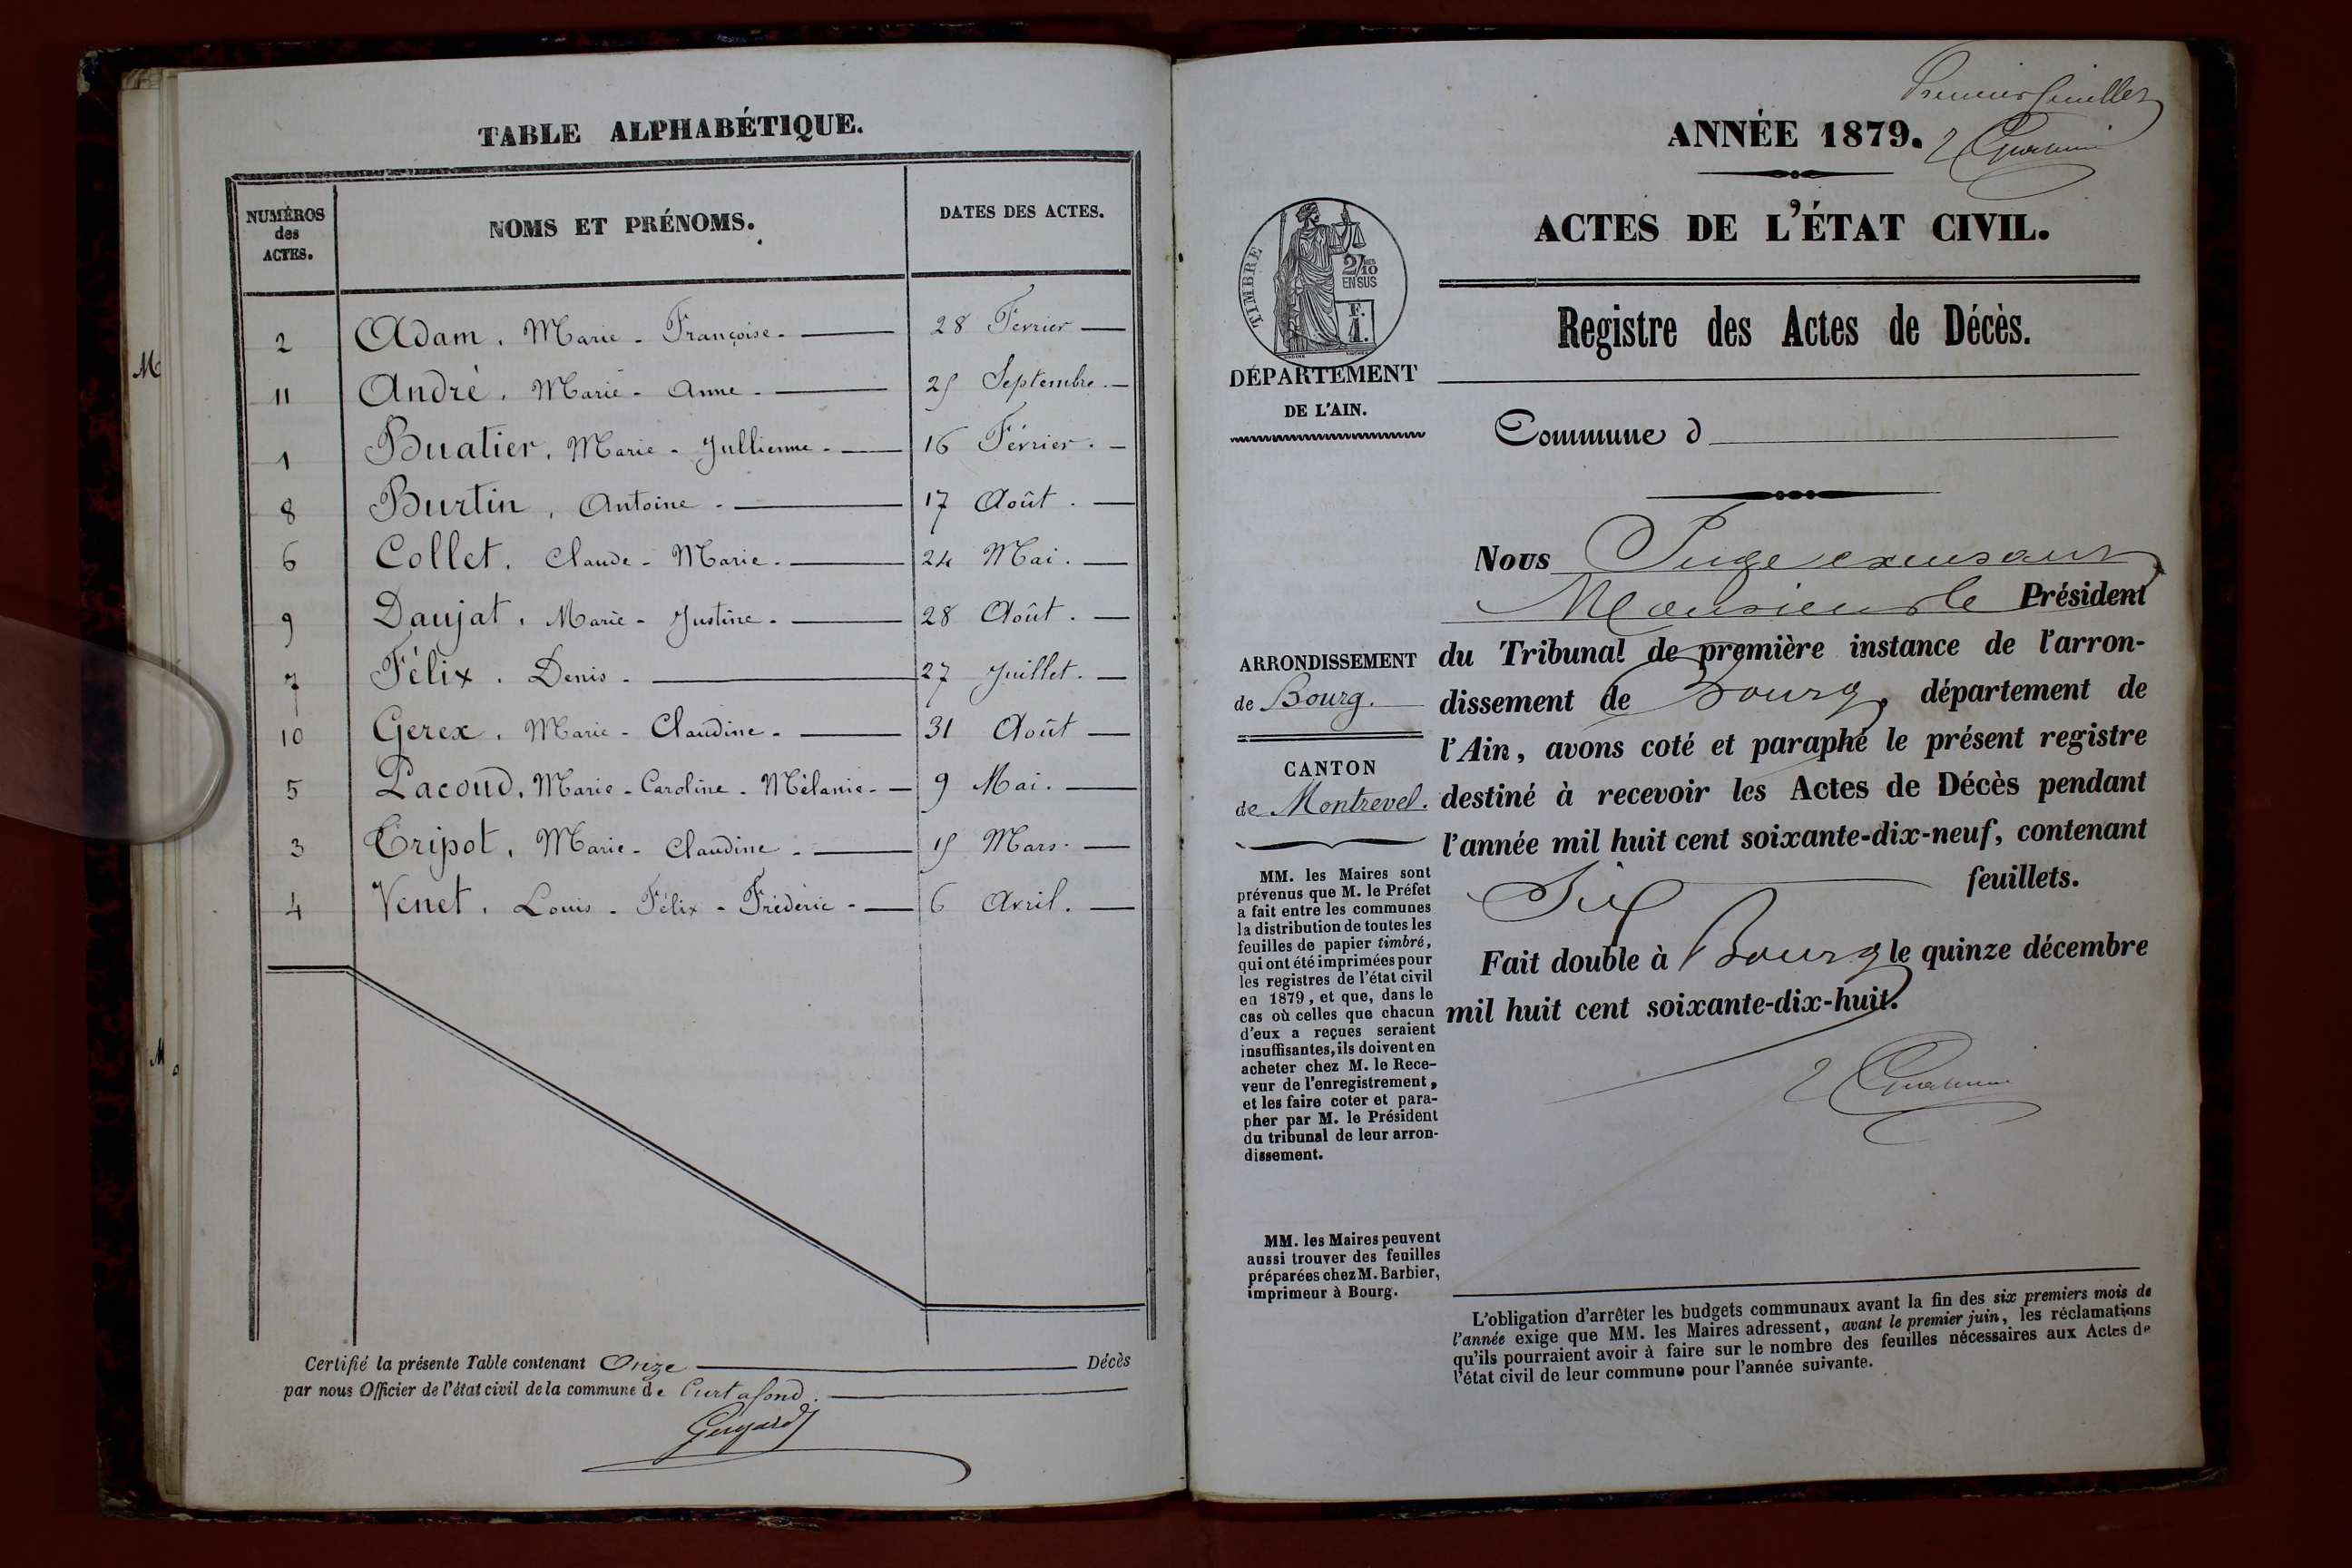 TABLE ALPHABÉTIQUE.
NUMÉROS
des
ACTES.
NOMS ET PRÉNOMS.
DATES DES ACTES.
2 Adam, Marie-Françoise. 28 Fevrier
11 André, Marie-Anne. 25 Septembre.
1 Buatier, Marie-Jullienne. 16 Février.
8 Burtin, Antoine. 17 Août.
6 Collet, Claude-Marie. 24 Mai.
9 Daujat, Marie-Justine. 28 Août.
7 Félix, Denis. 27 Juillet.
10 Gerex, Marie-Claudine. 31 Août
5 Pacoud, Marie-Caroline-Mélanie. 9 Mai.
3 Tripot, Marie-Claudine. 15 Mars.
4 Venet, Louis-Félix-Fréderic. 6 Avril.
Certifié la présente Table contenant Onze Décès
par nous Officier de l'état civil de la commune de Curtafond.
Premier feuillet
ANNÉE 1879.
ACTES DE L'ÉTAT CIVIL.
TIMBRE
2/10
EN SUS
F.
1.
Registre des Actes de Décès.
DÉPARTEMENT
DE L'AIN.
Commune d
Nous Juge excusant
Monsieur le Président
du Tribunal de première instance de l'arron-
dissement de Bourg, département de
l'Ain, avons coté et paraphé le présent registre
destiné à recevoir les Actes de Décès pendant
l'année mil huit cent soixante-dix-neuf, contenant
Six feuillets.
Fait double à Bourg le quinze décembre
mil huit cent soixante-dix-huit.
ARRONDISSEMENT
de Bourg.
CANTON
de Montrevel.
MM. les Maires sont
prévenus que M. le Préfet
a fait entre les communes
la distribution de toutes les
feuilles de papier timbré,
qui ont été imprimées pour
les registres de l'état civil
en 1879, et que, dans le
cas où celles que chacun
d'eux a reçues seraient
insuffisantes, ils doivent en
acheter chez M. le Rece-
veur de l'enregistrement,
et les faire coter et para-
pher par M. le Président
du tribunal de leur arron-
dissement.
MM. les Maires peuvent
aussi trouver des feuilles
préparées chez M. Barbier,
imprimeur à Bourg.
L'obligation d'arrêter les budgets communaux avant la fin des six premiers mois de
l'année exige que MM. les Maires adressent, avant le premier juin, les réclamations
qu'ils pourraient avoir à faire sur le nombre des feuilles nécessaires aux Actes de
l'état civil de leur commune pour l'année suivante.